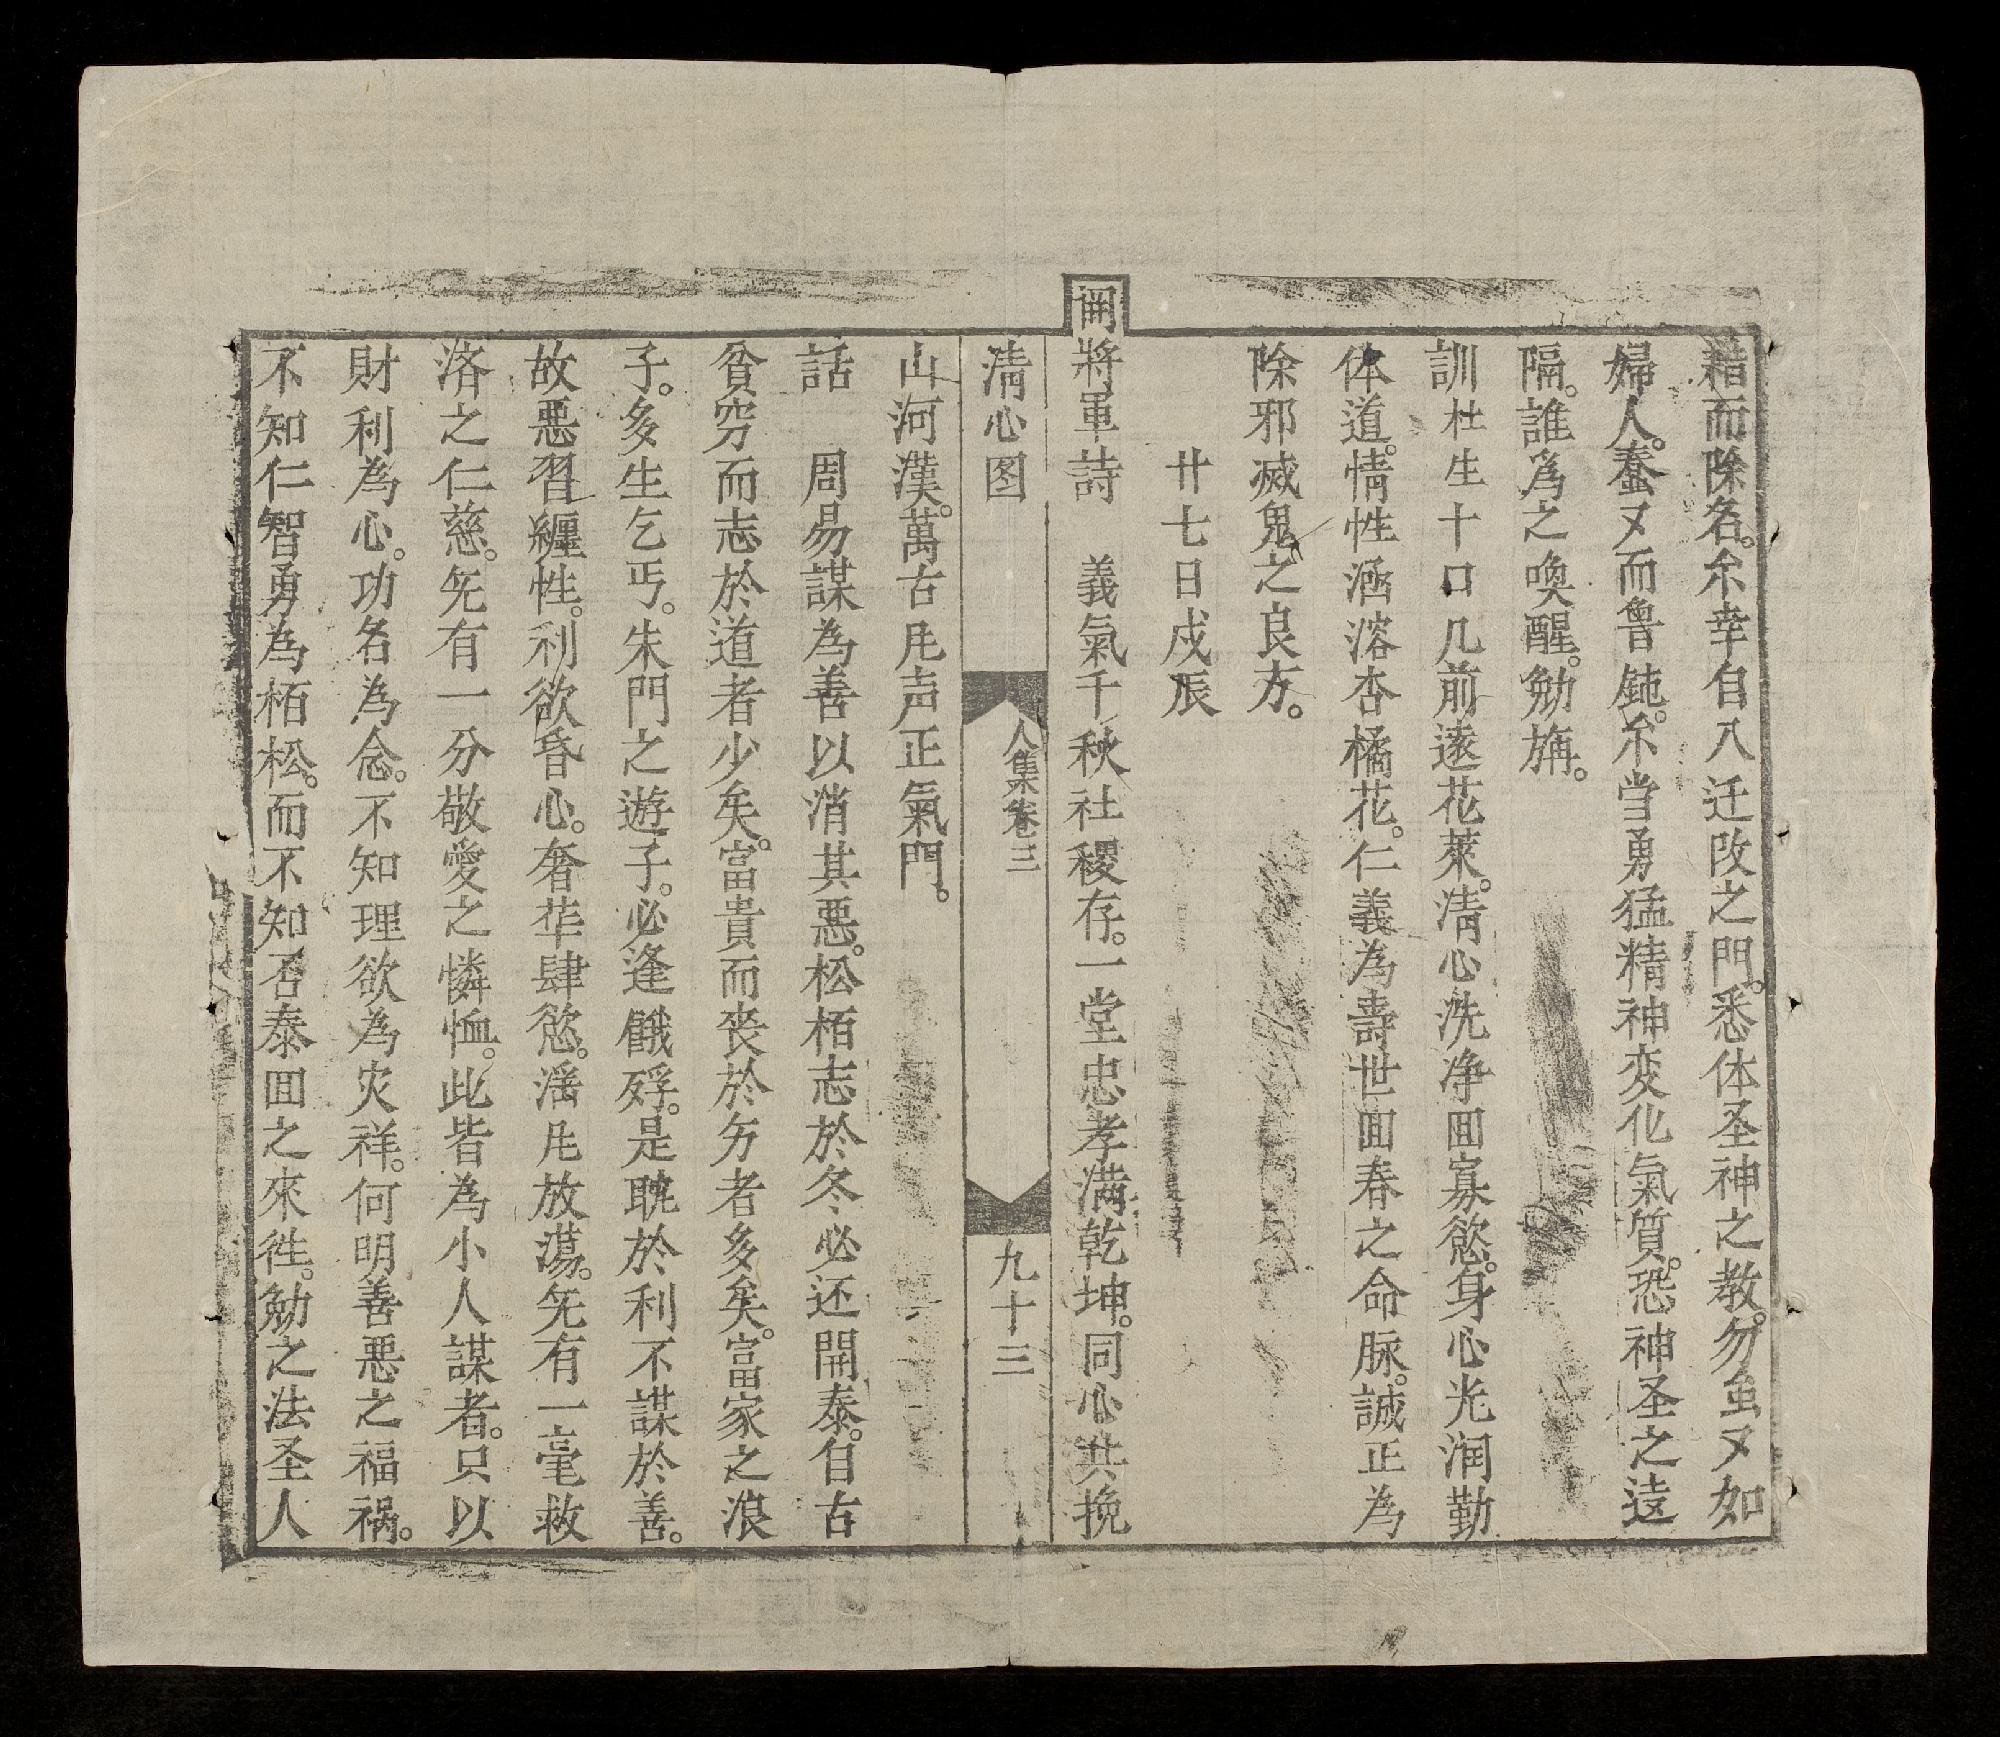 藉而除名。尒幸自入迁改之門。悉体圣神之教。勿虫又如
婦人。蚕又而魯鈍。尒当勇猛精神变化氣质。恐神圣之遠
隔。誰為之喚醒。勉旃。
訓杜生十口几前遠花萊。清心洗净囬寡慾。身心光润勤
体道。情性涵溶杏橘花。仁義為壽世囬春之命脉。誠正為
除邪滅鬼之良方。
廿七日戍辰
関將軍詩 義氣千秋社稷存。一堂忠孝满乾坤。同心共挽
清心图 人集卷三 九十三
山河漢。萬古凡声正氣門。
話 周易謀為善以消其惡。松栢志於冬必还開泰。自古
貧穷而志於道者少矣。富貴而丧於穷者多矣。富家之浪
子。多生乞丐。朱門之遊子。必逢餓殍。是耽於利不謀於善。
故悪習纏性。利欲昏心。奢华肆慾。淫凡放蕩。旡有一毫救
济之仁慈。旡有一分敬愛之憐恤。此皆為小人謀者。只以
財利為心。功名為念。不知理欲為灾祥。何明善悪之福祸。
不知仁智勇為栢松。而不知否泰囬之來徃。勉之法圣人